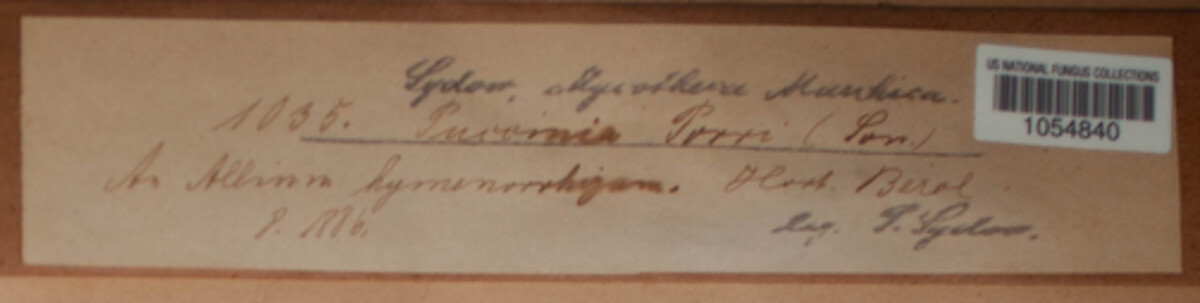 Sydow, Mycotheca Marchica.
1035. Puccinia Porri (Sow.)
An Allium hymenorrhizum. Hort. Berol.
8. 1886.
leg. P. Sydow.
US NATIONAL FUNGUS COLLECTIONS
1054840